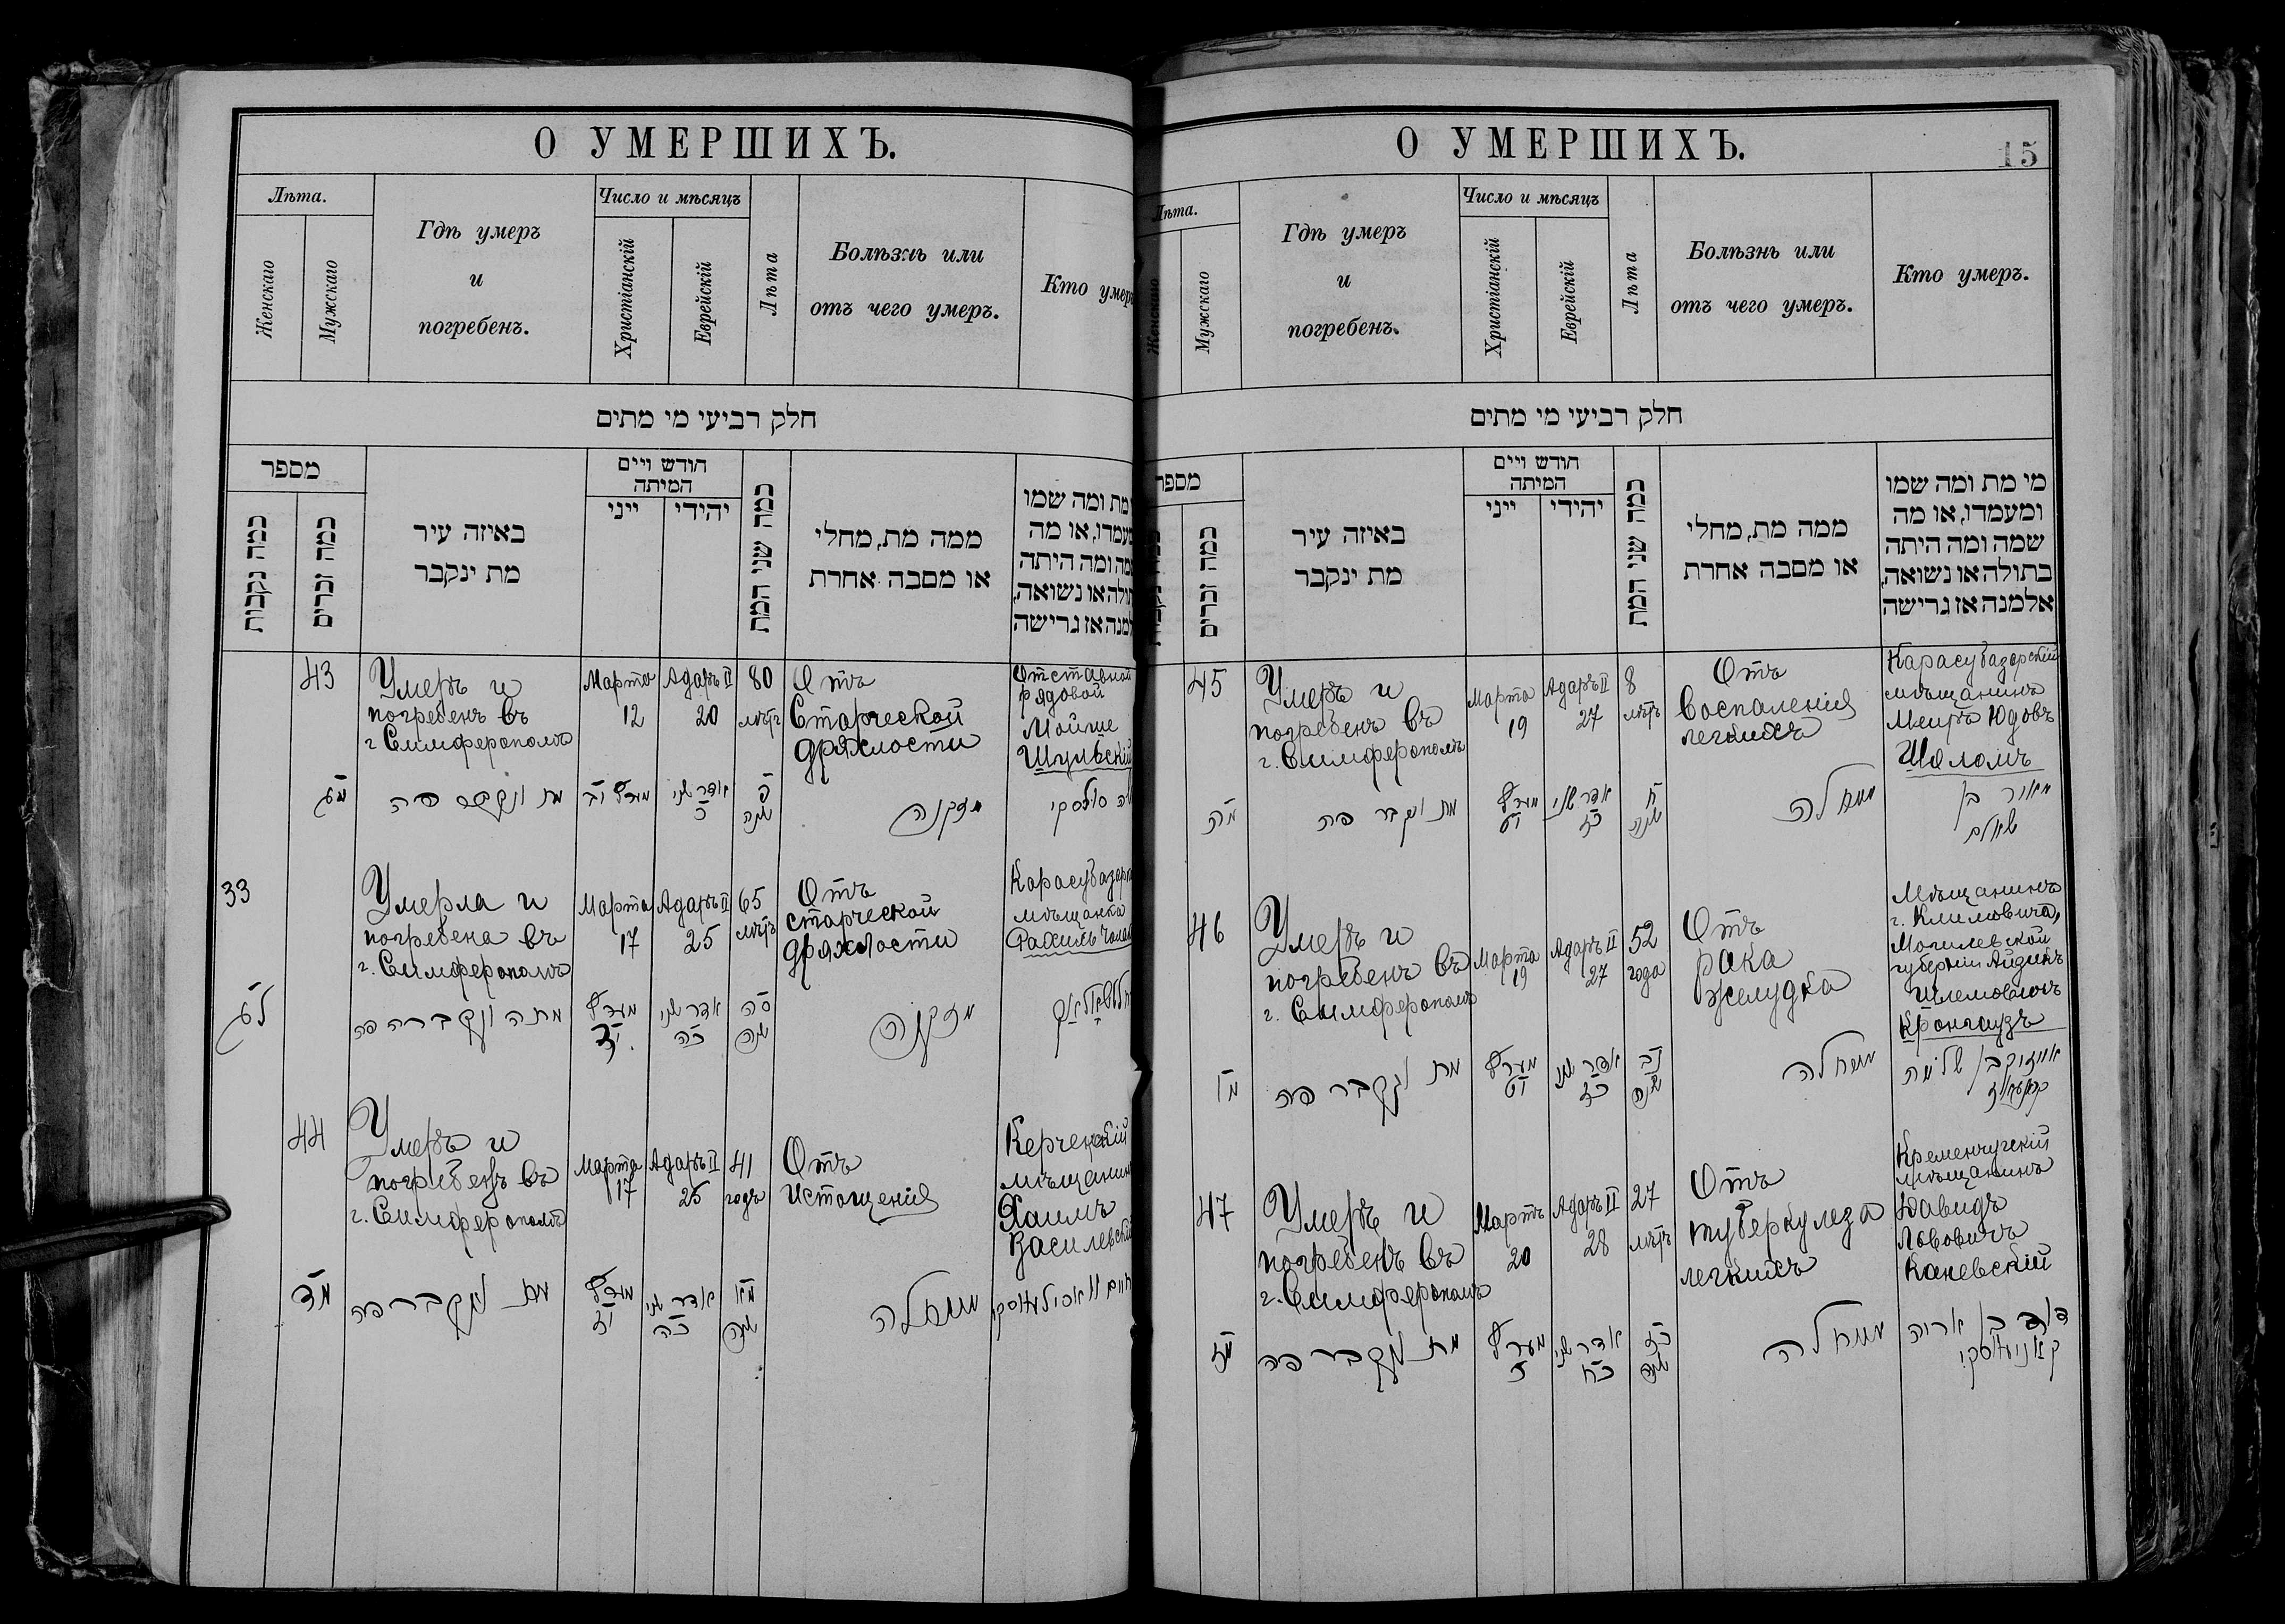 О УМЕРШИХЪ.
Лѣта.
Женскаго
Мужскаго
Гдѣ умеръ
и
погребенъ.
Число и мѣсяцъ
Христіанскій
Еврейскій
Лѣта
Болѣзнь или
отъ чего умеръ.
Кто умеръ
חלק רביעי מי מתים
מספר
כמה נקבות
כמה זכרים
באיזה עיר
מת ינקבר
חודש ויים
המיתה
ייני
יהודי
כמה שני המת
ממה מת, מחלי
או מסבה אחרת
מת ומה שמו
מעמדו, או מה
מה ומה היתה
תולה או נשואה,
למנה אז גרישה
43
Умеръ и
погребенъ въ
г Симферополѣ
Марта
12
Адаръ II
20
80
лѣтъ
Отъ
Старческой
дряхлости
Отставной
рядовой
Мойше
Шульскій
מג
מת ונקבר פה
מערץ יב
אדר שני
כ
פ
שנה
מזקנה
33
Умерла и
погребена въ
г. Симферополѣ
Марта
17
Адаръ II
25
65
лѣтъ
Отъ
старческой
дряхлости
Карасубазарс
мѣщанка
Рахиль
לג
מתה ונקברה פה
מערץ
יז
אדר שני
כה
סה
שנה
מזקנה
44
Умеръ и
погребенъ въ
г. Симферополѣ
Марта
17
Адаръ II
25
41
годъ
Отъ
истощенія
Керченскій
мѣщанин
Хаимъ
Василевскі
מד
מת ונקבר פה
מערץ
יז
אדר שני
כה
מא
שנה
מחלה
חיים וואסילעווסקי
О УМЕРШИХЪ.
15
Лѣта.
Женскаго
Мужскаго
Гдѣ умеръ
и
погребенъ.
Число и мѣсяцъ
Христіанскій
Еврейскій
Лѣта
Болѣзнь или
отъ чего умеръ.
Кто умеръ.
חלק רביעי מי מתים
מספר
כמה זכרים
באיזה עיר
מת ינקבר
חודש ויים
המיתה
ייני
יהודי
כמה שני המת
ממה מת, מחלי
או מסבה אחרת
מי מת ומה שמו
ומעמדו, או מה
שמה ומה היתה
בתולה או נשואה,
אלמנה אז גרישה
45
Умеръ и
погребенъ въ
г. Симферополѣ
Марта
19
Адаръ II
27
8
лѣтъ
Отъ
воспаленія
легкихъ
Карасубазарскій
мѣщанинъ
Меиръ Юдовъ
Шаломъ
מה
מת ונקבר פה
מערץ
יט
אדר שני
כז
ח
שנה
מחלה
מאיר בן
46
Умеръ и
погребенъ въ
г. Симферополѣ
Марта
19
Адаръ II
27
52
года
Отъ
рака
желудка
Мѣщанинъ
г. Климовича,
Могилевской
губерніи Айзикъ
Шлемовичъ
Кронгаузъ
מו
מת ונקבר פה
מערץ
יט
אדר שני
כז
נב
שנה
מחלה
אייזיק בן שלמה
47
Умеръ и
погребенъ въ
г. Симферополѣ
Мартъ
20
Адаръ II
28
27
лѣтъ
Отъ
туберкулеза
легкихъ
Кременчугскій
мѣщанинъ
Давидъ
Лввовичъ
Каневскій
מז
מת ונקבר פה
מערץ
כ
אדר שני
כח
כז
שנה
מחלה
דוד בן אריה
קאניעווסקי